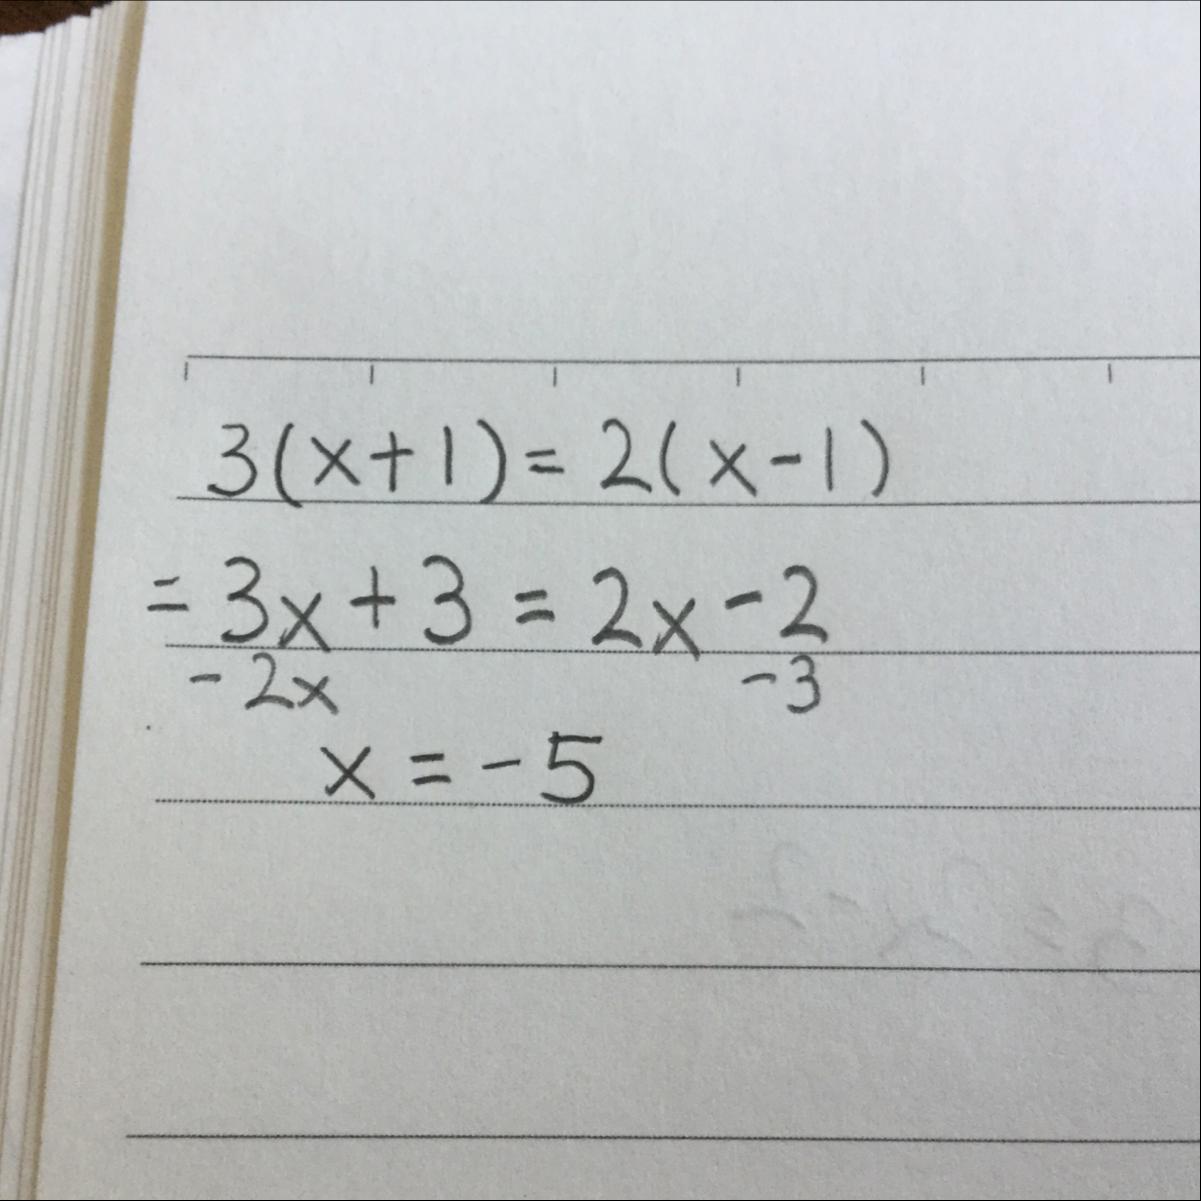 3(x+1)=2(x-1)
=3x+3=2x-2
-2x -3
x=-5